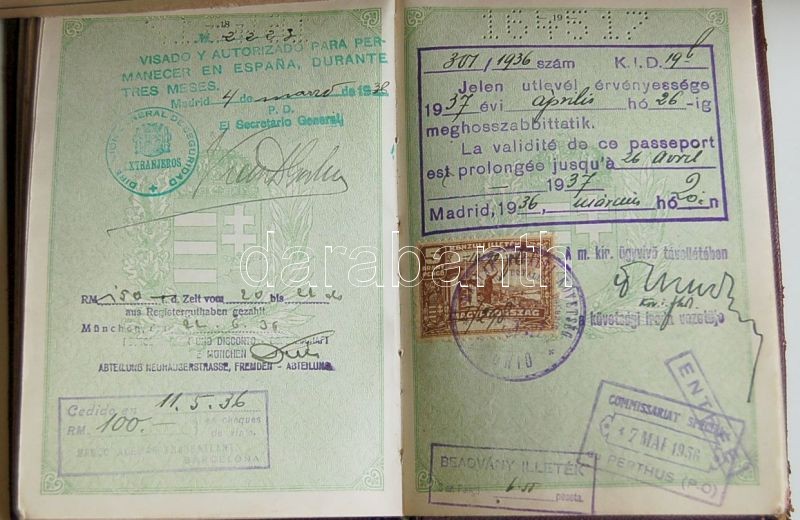 18
No. 2223
VISADO Y AUTORIZADO PARA PER-
MANECER EN ESPAÑA, DURANTE
TRES MESES.
Madrid 4 de marzo de 1936
P. D.
El Secretario General
DIRECCION GENERAL DE SEGURIDAD
EXTRANJEROS
RM 150 d. Zeit vom 20 bis
aus Registerguthaben gezahlt
München, 22. 6. 36
UND DISCONTO
MÜNCHEN
ABTEILUNG NEUHAUSERSTRASSE, FREMDEN - ABTEILUNG
Cedido en 11.5.36
RM. 100.- en cheques
de viaje.
BANCO ALEMAN TRANSATLANTICO
BARCELONA
19
164517
307/1936 szám K.I.D. 19
Jelen utlevél érvényessége
1937 évi április hó 26-ig
meghosszabbittatik.
La validité de ce passeport
est prolongée jusqu'à 26 avril
1937
Madrid, 1936, március hó 20.n
5
MAGYARORSZÁG
A m. kir. ügyvivő távollétében
követségi iroda vezetője
BEADVÁNY ILLETÉK
peseta.
ENTRÉE
COMMISSARIAT SPÉCIAL
7 MAI 1936
PERTHUS (P-O)
darabanth